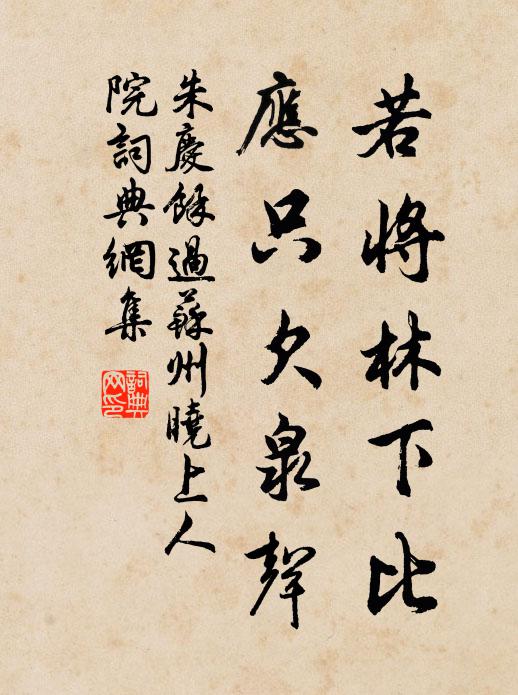 若將林下比
應只欠泉聲
朱慶餘過蘇州曉上人
院詞典網集
詞典網印